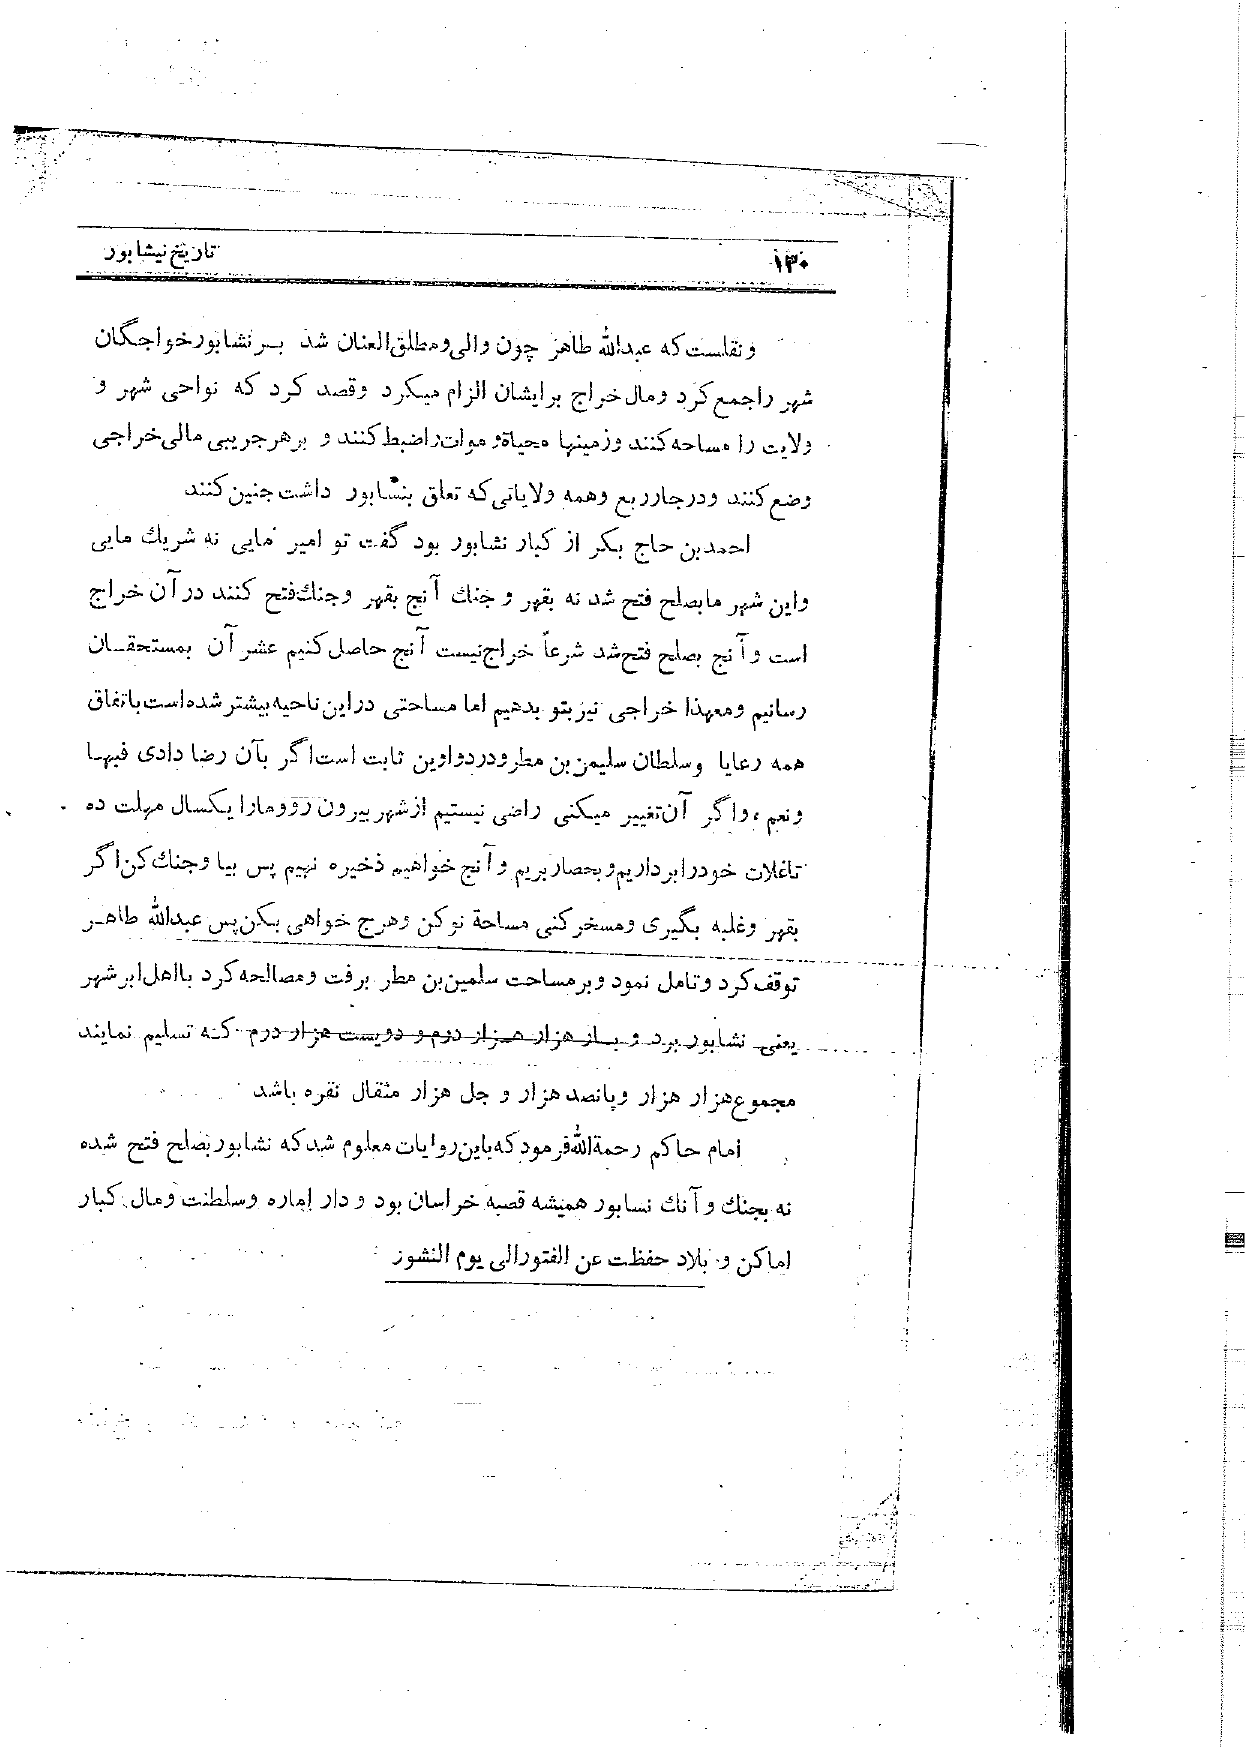 ۱۳۰ تاریخ نیشابور
ونقلست که عبدالله طاهر چون والی ومطلق العنان شد بر نشابور خواجگان
شهر را جمع کرد ومال خراج برایشان الزام میکرد وقصد کرد که نواحی شهر و
ولایت را مساحه کنند وزمینها محیاة و موات را ضبط کنند و برهر جریبی مالی خراجی
وضع کنند ودرجار ربع وهمه ولایاتی که تعلق بنشابور داشت جنین کنند
احمد بن حاج بکر از کبار نشابور بود گفت تو امیر مایی نه شریك مایی
واین شهر ما بصلح فتح شد نه بقهر و جنك آنج بقهر وجنك فتح کنند در آن خراج
است و آنج بصلح فتح شد شرعاً خراج نیست آنج حاصل کنیم عشر آن بمستحقان
رسانیم ومعهذا خراجی نیز بتو بدهیم اما مساحتی دراین ناحیه بیشتر شده است باتفاق
همه رعایا وسلطان سلیمن بن مطر ودر دواوین ثابت است اگر بآن رضا دادی فیها
ونعم ، واگر آن تغییر میکنی راضی نیستیم ازشهر بیرون رو ومارا یکسال مهلت ده
تاغلات خودرا برداریم وبحصار بریم و آنج خواهیم ذخیره نهیم پس بیا وجنك کن اگر
بقهر وغلبه بگیری ومسخر کنی مساحة نو کن وهرج خواهی بکن پس عبدالله طاهر
توقف کرد وتامل نمود وبر مساحت سلمین بن مطر برفت ومصالحه کرد بااهل ابرشهر
یعنی نشابور برد و باز هزار هزار درم و دویست هزار درم که تسلیم نمایند
مجموع هزار هزار وپانصد هزار و جل هزار مثقال نقره باشد
امام حاکم رحمة الله فرمود که باین روایات معلوم شد که نشابور بصلح فتح شده
نه بجنك و آنك نسابور همیشه قصبه خراسان بود و دار اماره وسلطنت ومال کبار
اماکن و بلاد حفظت عن الفتور الی یوم النشور